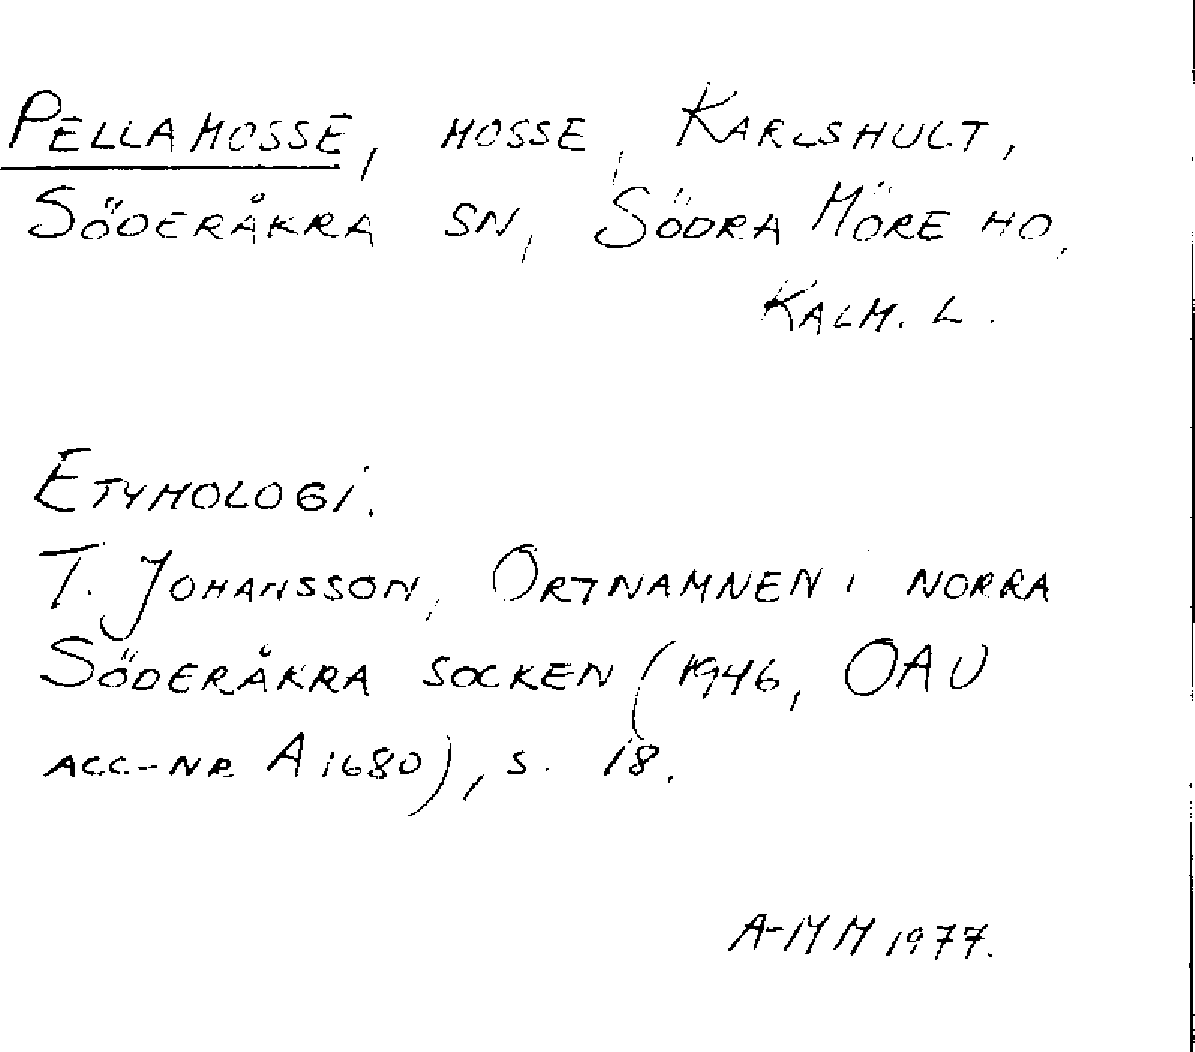 PELLAMOSSE, MOSSE, KARLSHULT,
SÖDERÅKRA SN, SÖDRA MÖRE HD,
KALM. L.
ETYMOLOGI.
T. JOHANSSON, ORTNAMNEN I NORRA
SÖDERÅKRA SOCKEN (1946, OAU
ACC-NR A 1680), S. 18.
A-MM 1977.